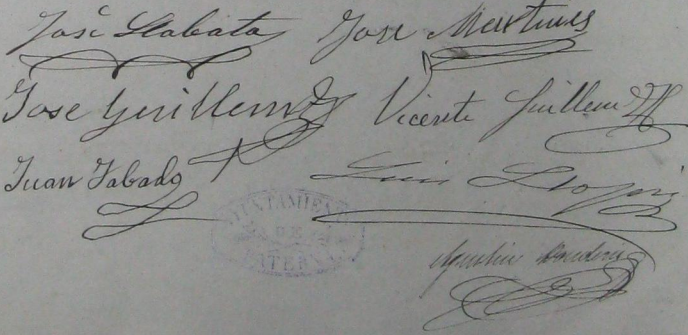 José Llabata José Martines
José Guillem Vicente Guillem
Juan Tabado Luis Llopis
AYUNTAMIENTO
DE
PATERNA
Agustin